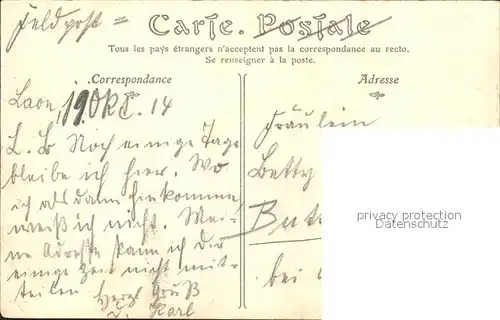 Feldpost =
Carte Postale
Tous les pays étrangers n'acceptent pas la correspondance au recto.
Se renseigner à la poste.
Correspondance
Laon, 19. Okt. 14
L. B. Noch einige Tage
bleibe ich hier. Wo
ich als dann hinkomme,
weiß ich nicht. Mei-
ne Adresse kann ich Dir
einige Zeit nicht mit-
teilen. Herzl Gruß
Karl
Adresse
Fräulein
Betty
bei
privacy protection
Datenschutz